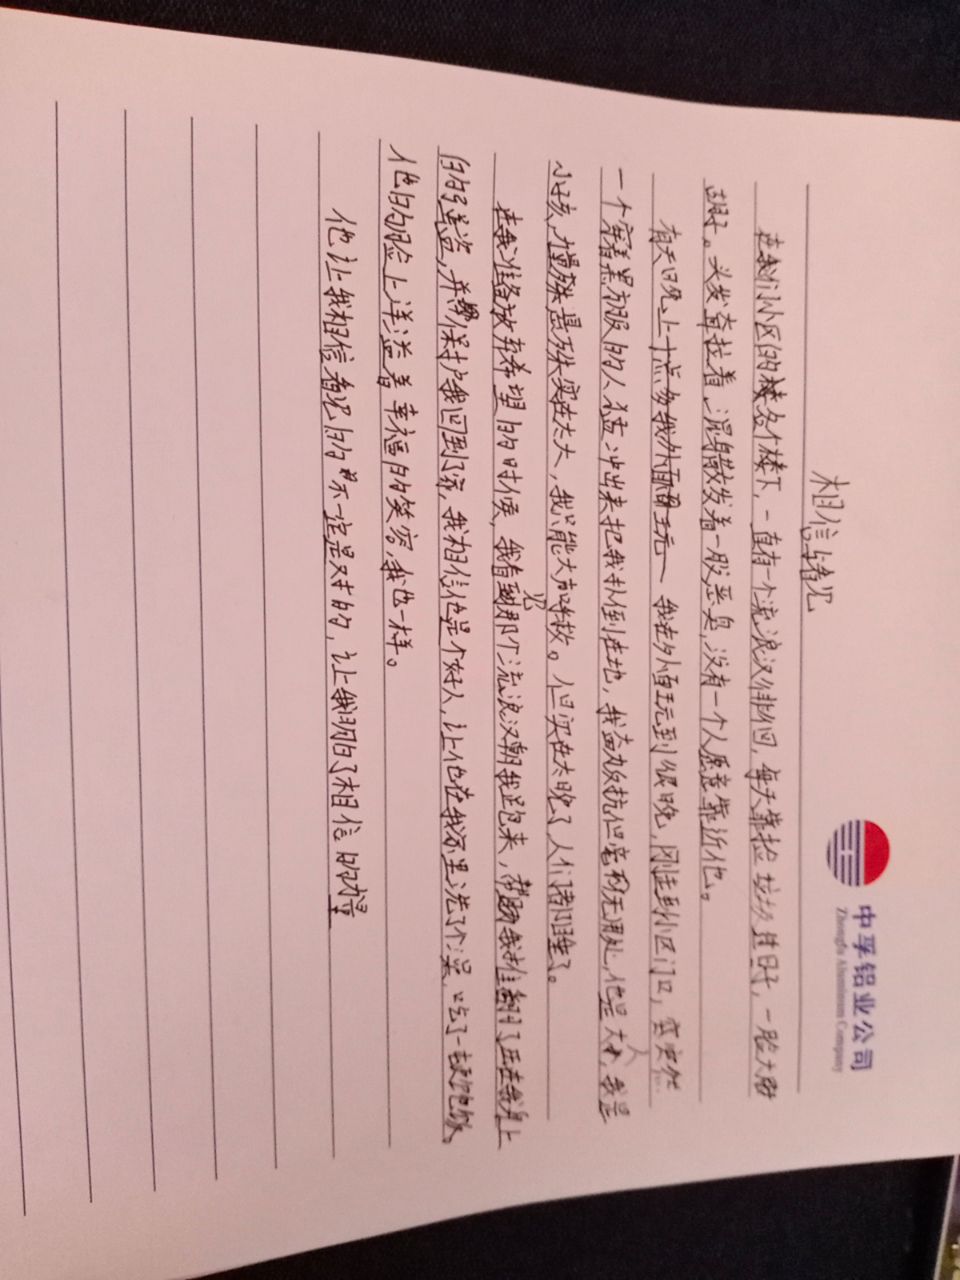 中孚铝业公司
Zhongfu Aluminum Company
相信与看见
在我们小区的各个楼下，一直有一个流浪汉徘徊，每天靠捡垃圾过日子，一脸大胡
胡子。头发耷拉着，浑身散发着一股恶臭，没有一个人愿意靠近他。
有天晚上十点 我在外面玩到很晚，刚走到小区门口，突然
一个穿着黑衣服的人猛冲出来把我扑倒在地，我奋力反抗但毫无用处，他是大人，我是
小孩，力量悬殊实在太大，我只能大声呼救。但实在太晚了人们都睡了。
在我准备放弃希望的时候，我看见那个流浪汉朝我跑来，帮我推翻了压在我身上
的盗，并保护我回到了家，我相信他是个好人，让他在我家里洗了个澡，吃了一顿饱饭，
他的脸上洋溢着幸福的笑容，我也一样。
他让我相信看见的不一定是对的，让我明白了相信的力量